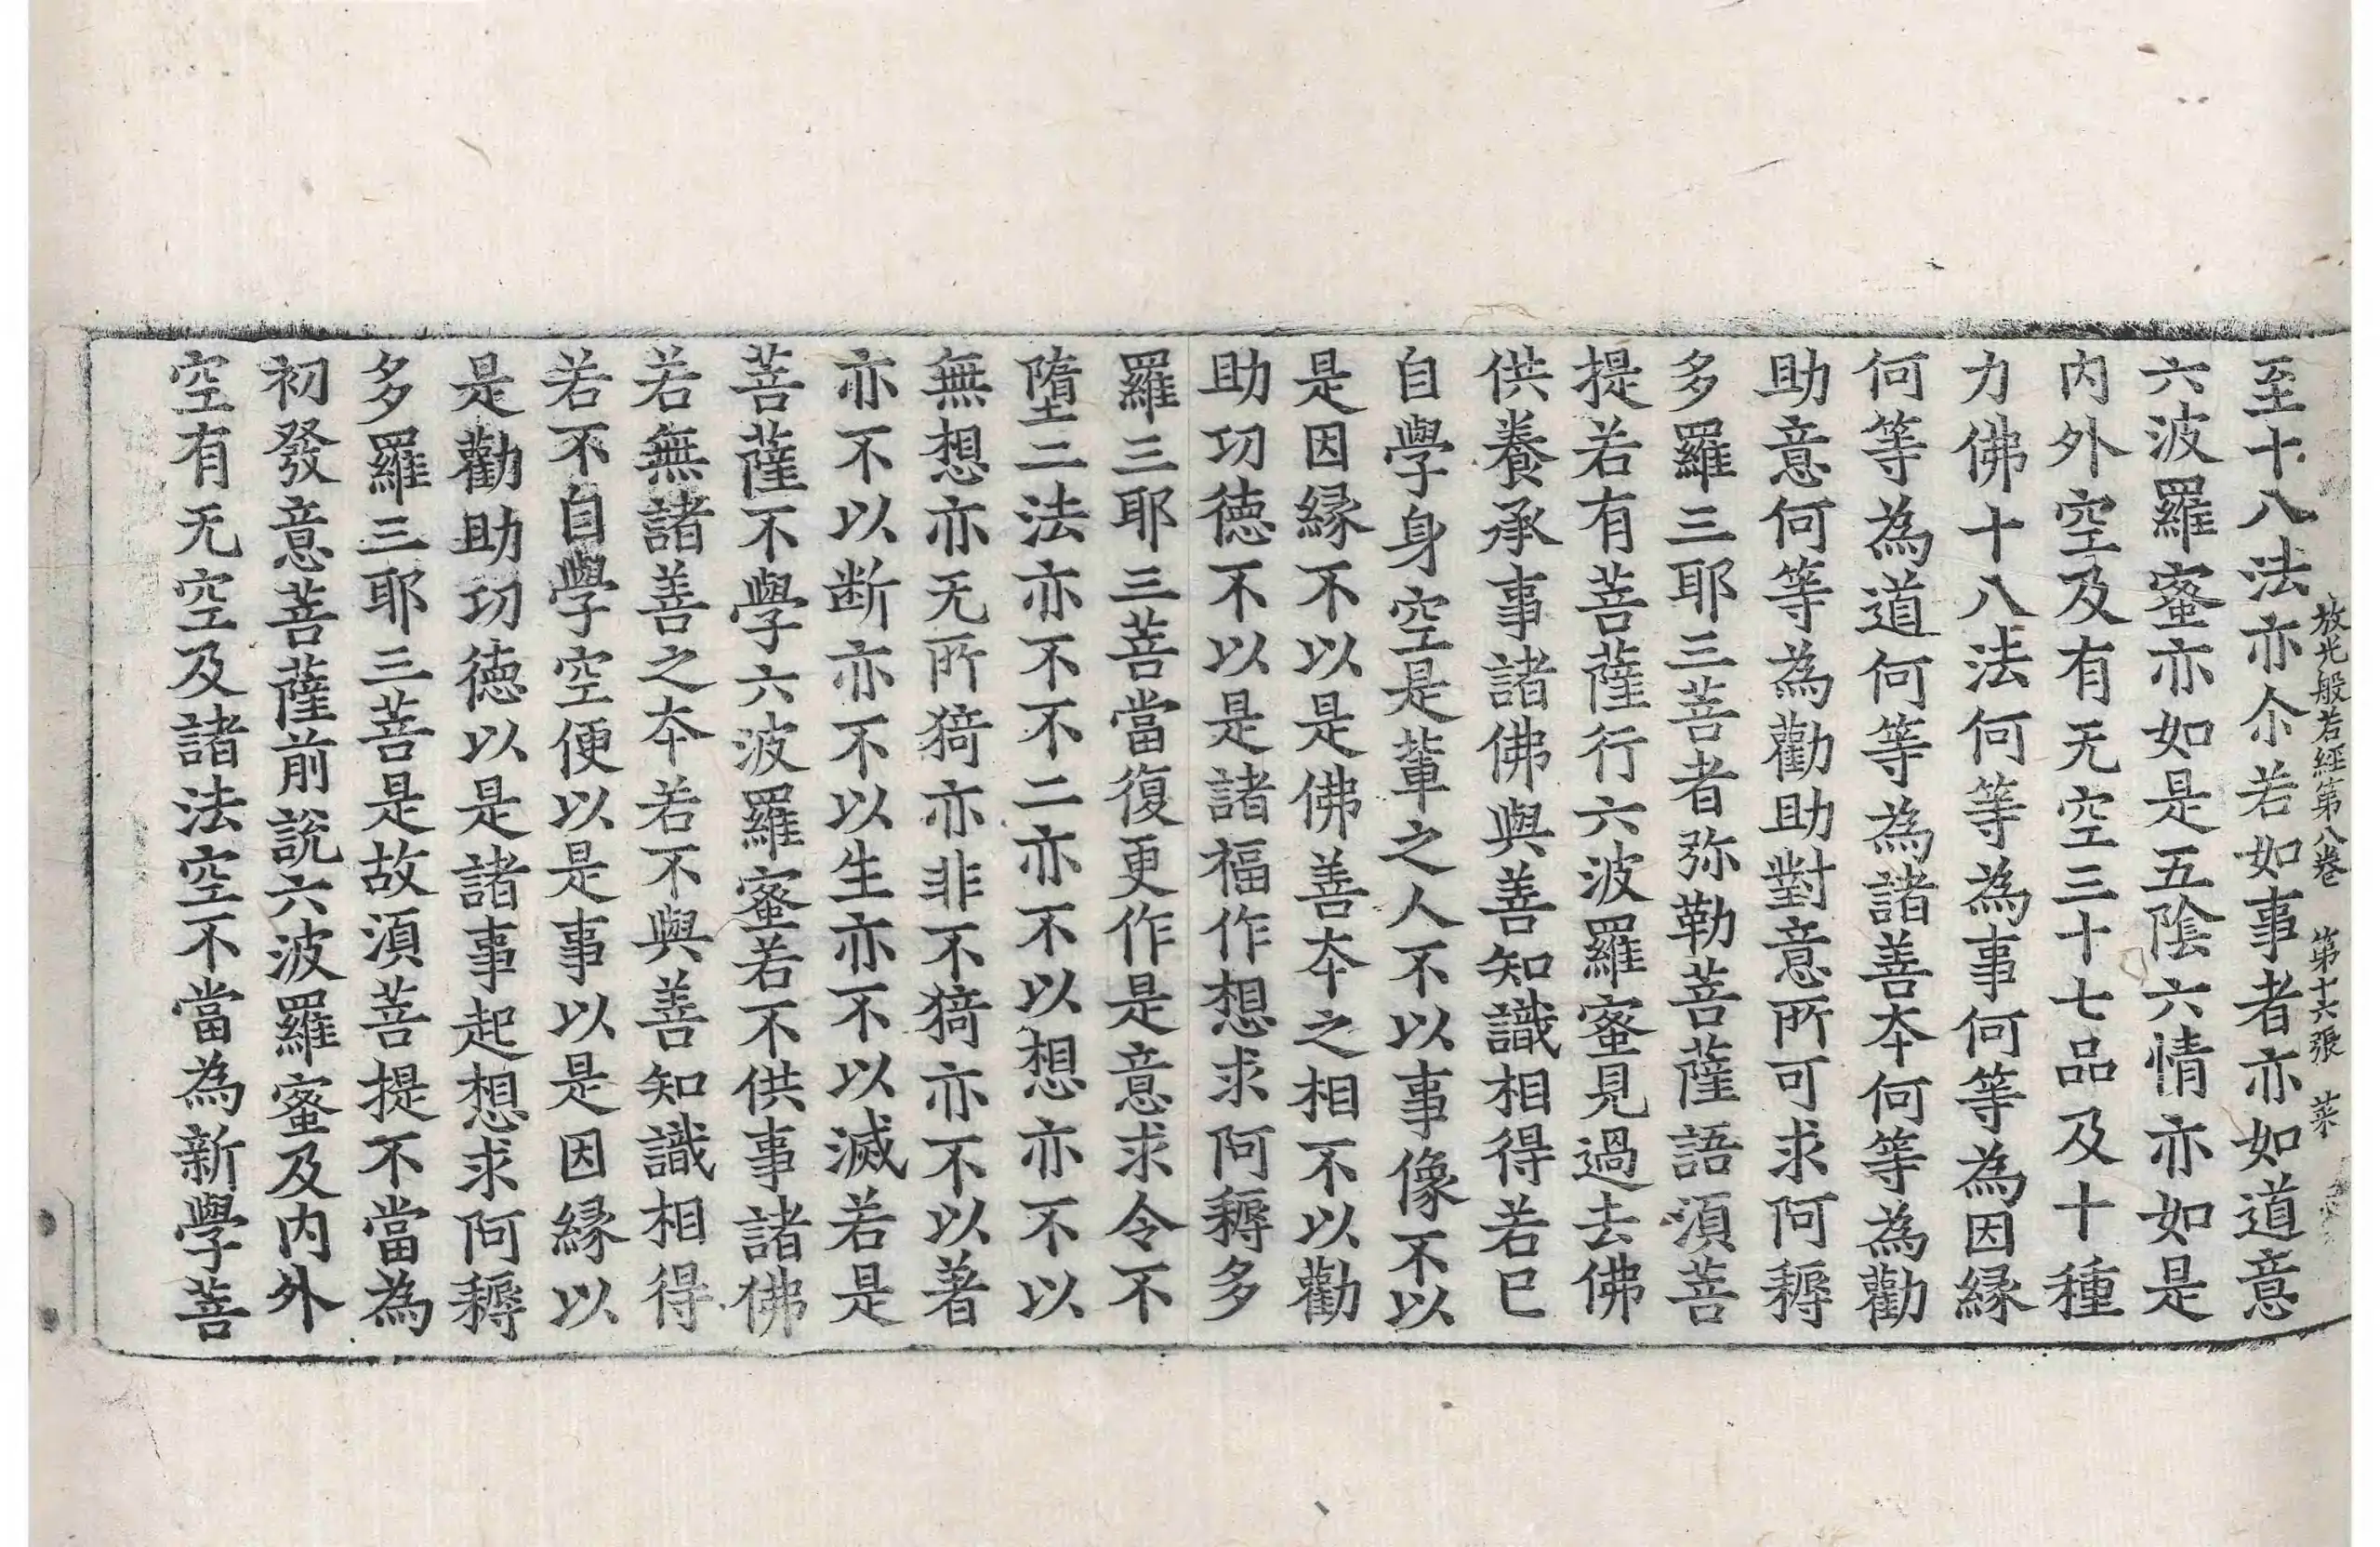 放光般若經第八卷　第十六張　菜
至十八法亦尒若如事者亦如道意
六波羅蜜亦如是五陰六情亦如是
内外空及有无空三十七品及十種
力佛十八法何等為事何等為因縁
何等為道何等為諸善夲何等為勸
助意何等為勸助對意所可求阿耨
多羅三耶三菩者弥勒菩薩語湏菩
提若有菩薩行六波羅蜜見過去佛
供養承事諸佛與善知識相得若已
自學身空是輩之人不以事像不以
是因縁不以是佛善夲之相不以勸
助功徳不以是諸福作想求阿耨多
羅三耶三菩當復更作是意求令不
墮二法亦不不二亦不以想亦不以
無想亦无所猗亦非不猗亦不以著
亦不以断亦不以生亦不以滅若是
菩薩不學六波羅蜜若不供事諸佛
若無諸善之夲若不與善知識相得
若不自學空便以是事以是因縁以
是勸助功徳以是諸事起想求阿耨
多羅三耶三菩是故湏菩提不當為
初發意菩薩前說六波羅蜜及内外
空有无空及諸法空不當為新學菩